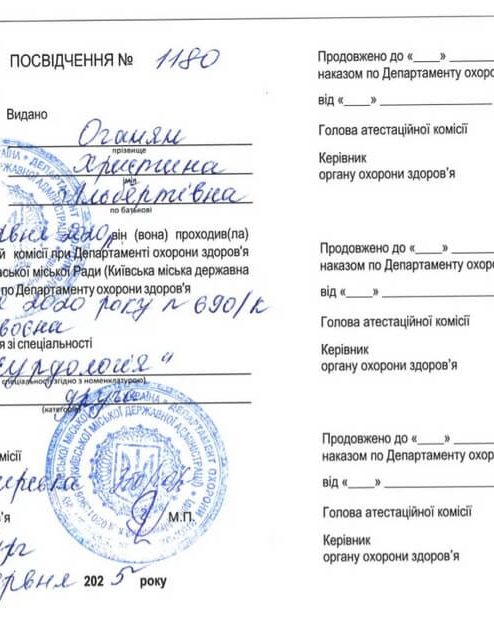 ПОСВІДЧЕННЯ № 1180
Видано
Оганян
прізвище
Христина
ім'я
Альбертівна
по батькові
2020р він (вона) проходив(ла)
й комісії при Департаменті охорони здоров'я
вської міської Ради (Київська міська державна
по Департаменту охорони здоров'я
2020 року № 690/к
своєна
я зі спеціальності
сурдологія"
спеціальності згідно з номенклатурою)
друга
(категорія)
місії
'я
М.П.
рг
ервня 2025 року
Продовжено до «____» ______
наказом по Департаменту охоро
від «____» ______
Голова атестаційної комісії
Керівник
органу охорони здоров'я
Продовжено до «____» ______
наказом по Департаменту охоро
від «____» ______
Голова атестаційної комісії
Керівник
органу охорони здоров'я
Продовжено до «____» ______
наказом по Департаменту охоро
від «____» ______
Голова атестаційної комісії
Керівник
органу охорони здоров'я